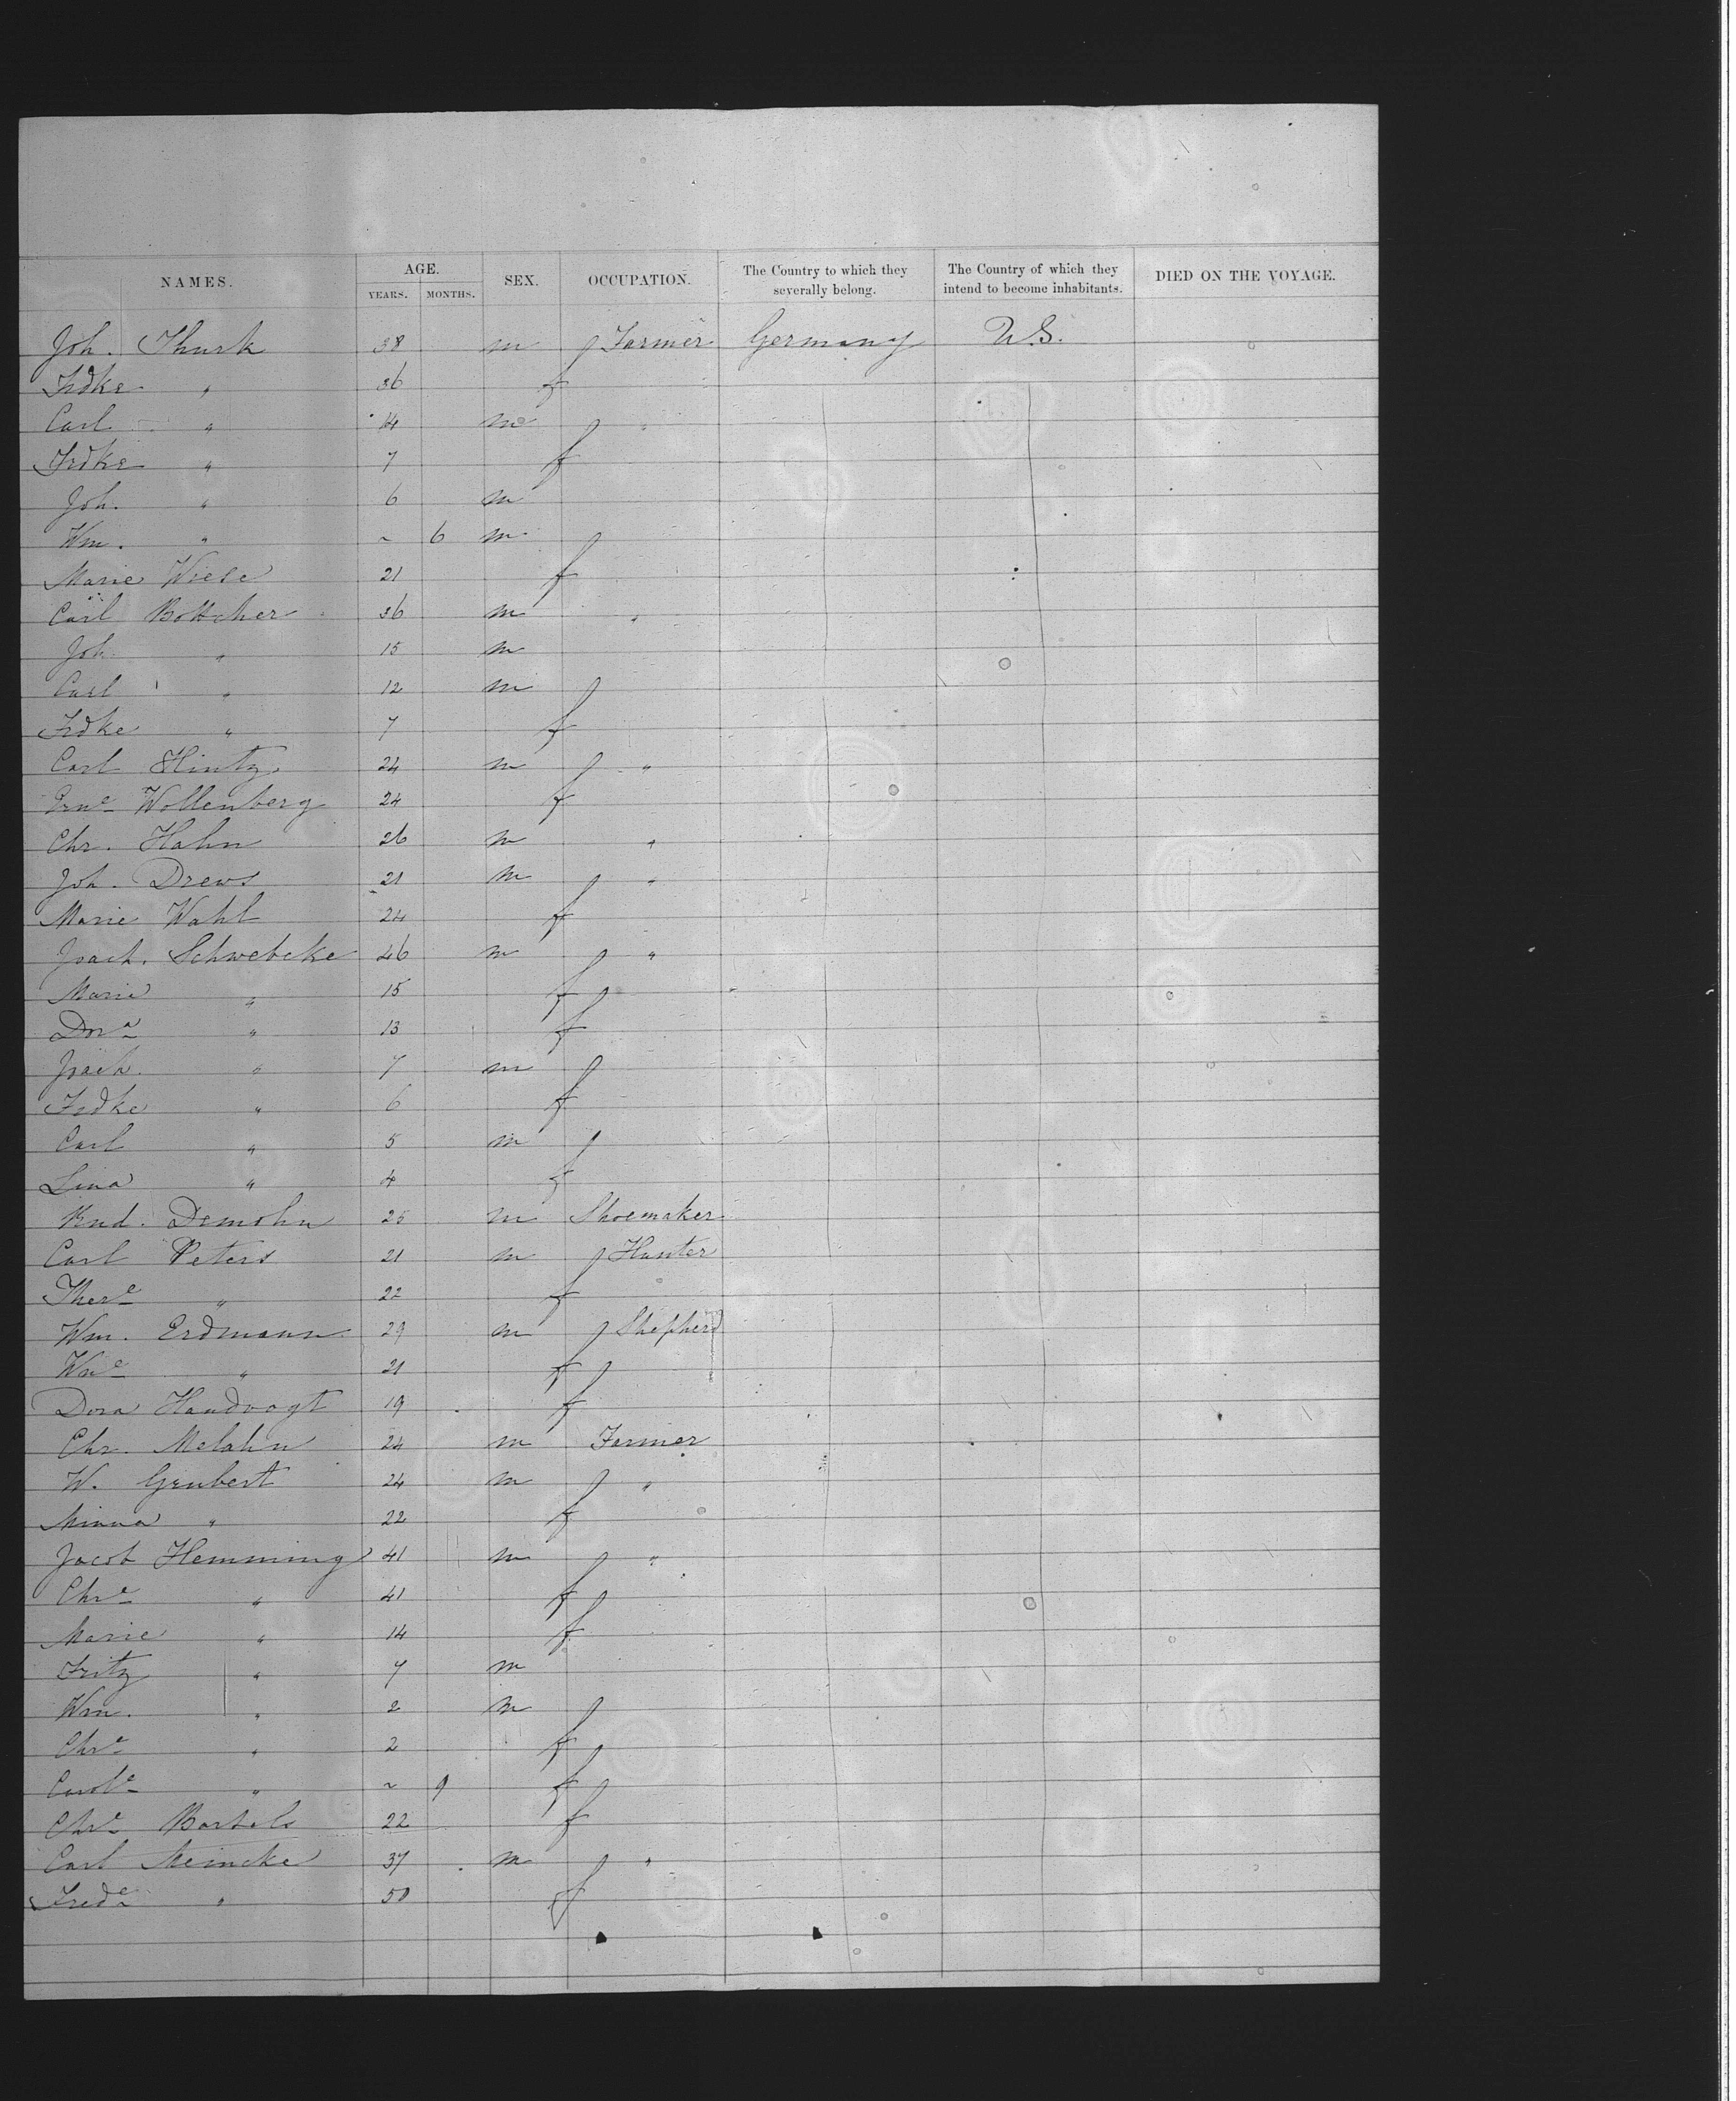 NAMES. AGE. YEARS. MONTHS. SEX. OCCUPATION. The Country to which they severally belong. The Country of which they intend to become inhabitants. DIED ON THE VOYAGE.
Joh. Thurk 38 m Farmer Germany U.S.
Frdke " 36 f
Carl " 14 m "
Frdke " 7 f
Joh. " 6 m
Wm. " ~ 6 m
Marie Wiese 21 f
Carl Bottcher 36 m "
Joh. " 15 m
Carl " 12 m
Frdke " 7 f
Carl Hintz 24 m "
Erne Wollenberg 24 f
Chr. Hahn 26 m "
Joh. Drews 21 m "
Marie Wahl 24 f
Joach. Schwebcke 46 m "
Marie " 15 f
Dora " 13 f
Joach. " 7 m
Frdke " 6 f
Carl " 5 m
Lina " 4 f
Rud. Demohn 25 m Shoemaker
Carl Peters 21 m Hunter
There " 22 f
Wm. Erdmann 29 m Shepherd
Wne " 21 f
Dora Handvogt 19 f
Chr. Melahn 24 m Farmer
W. Grubert 24 m "
Minna " 22 f
Jacob Hemming 41 m "
Chre " 41 f
Marie " 14 f
Fritz " 7 m
Wm. " 2 m
Chre " 2 f
Carole " ~ 9 f
Chre Bartels 22 f
Carl Meincke 37 m "
Frede " 50 f